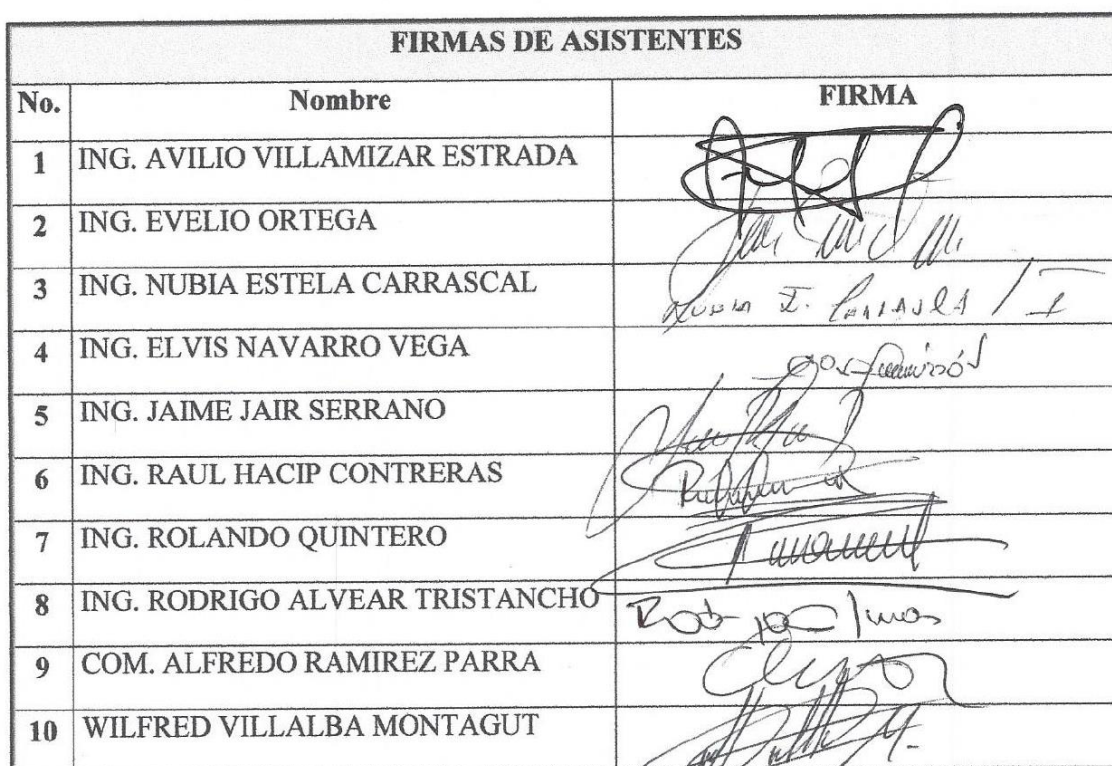 FIRMAS DE ASISTENTES
No. Nombre FIRMA
1 ING. AVILIO VILLAMIZAR ESTRADA
2 ING. EVELIO ORTEGA
3 ING. NUBIA ESTELA CARRASCAL
4 ING. ELVIS NAVARRO VEGA
5 ING. JAIME JAIR SERRANO
6 ING. RAUL HACIP CONTRERAS
7 ING. ROLANDO QUINTERO
8 ING. RODRIGO ALVEAR TRISTANCHO
9 COM. ALFREDO RAMIREZ PARRA
10 WILFRED VILLALBA MONTAGUT